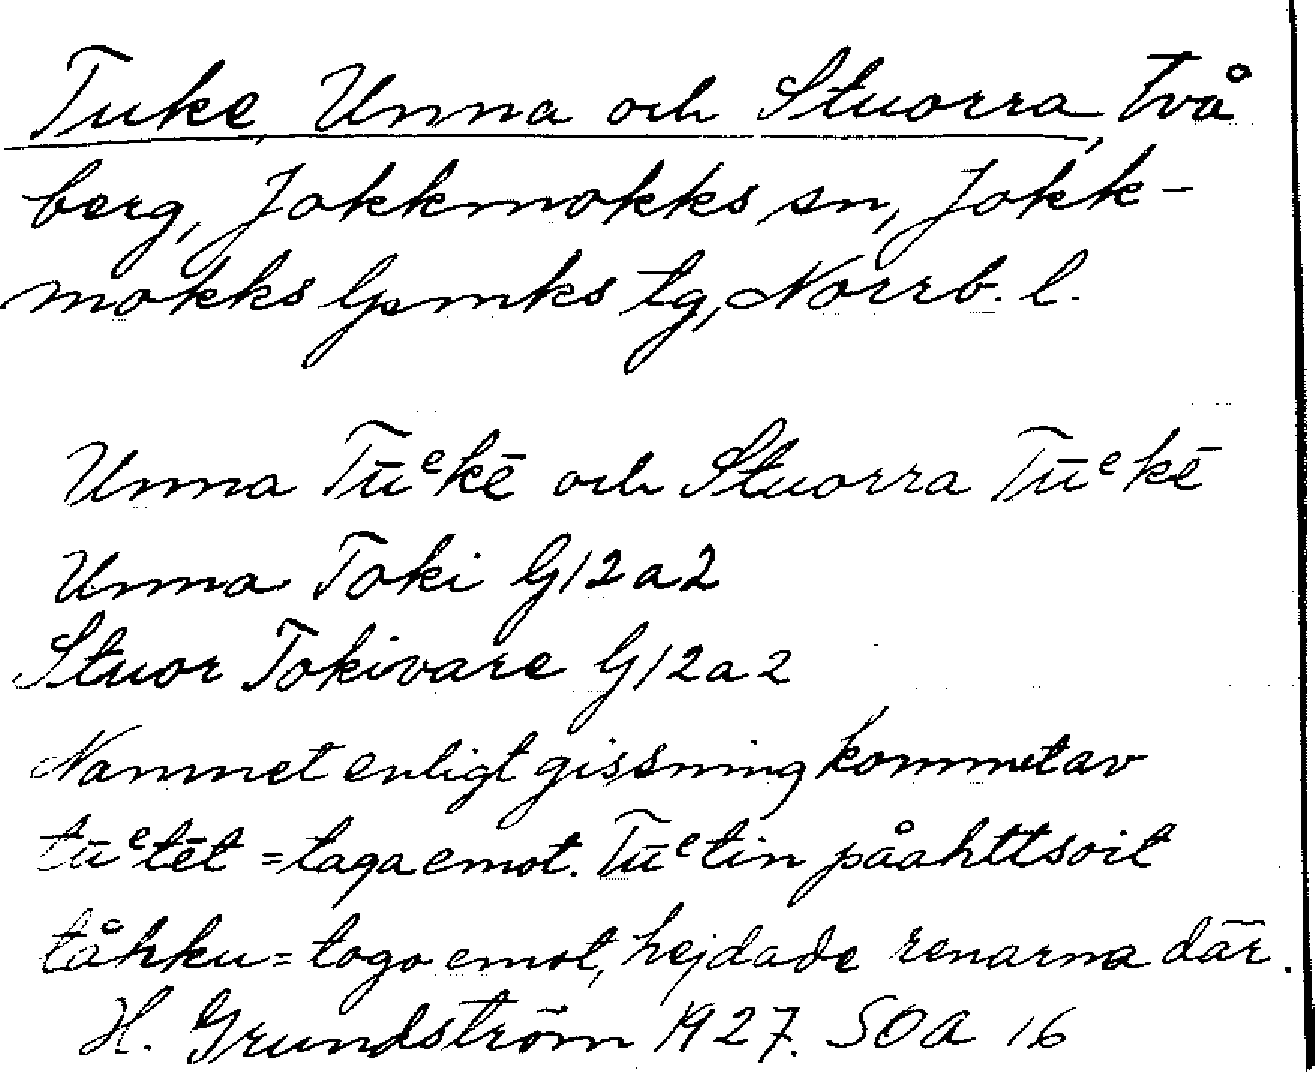 Tuke, Unna och Stuorra, två
berg, Jokkmokks sn, Jokk-
mokks lpmks tg, Norrb. l.
Unna Tūᵉkē och Stuorra Tūᵉkē
Unna Toki G12a2
Stuor Tokivare G12a2
Namnet enligt gissning kommet av
tūᵉtēt = taga emot. Tūᵉtin påahttsoit
tåhku = togo emot, hejdade renarna där.
H. Grundström 1927. SOA 16